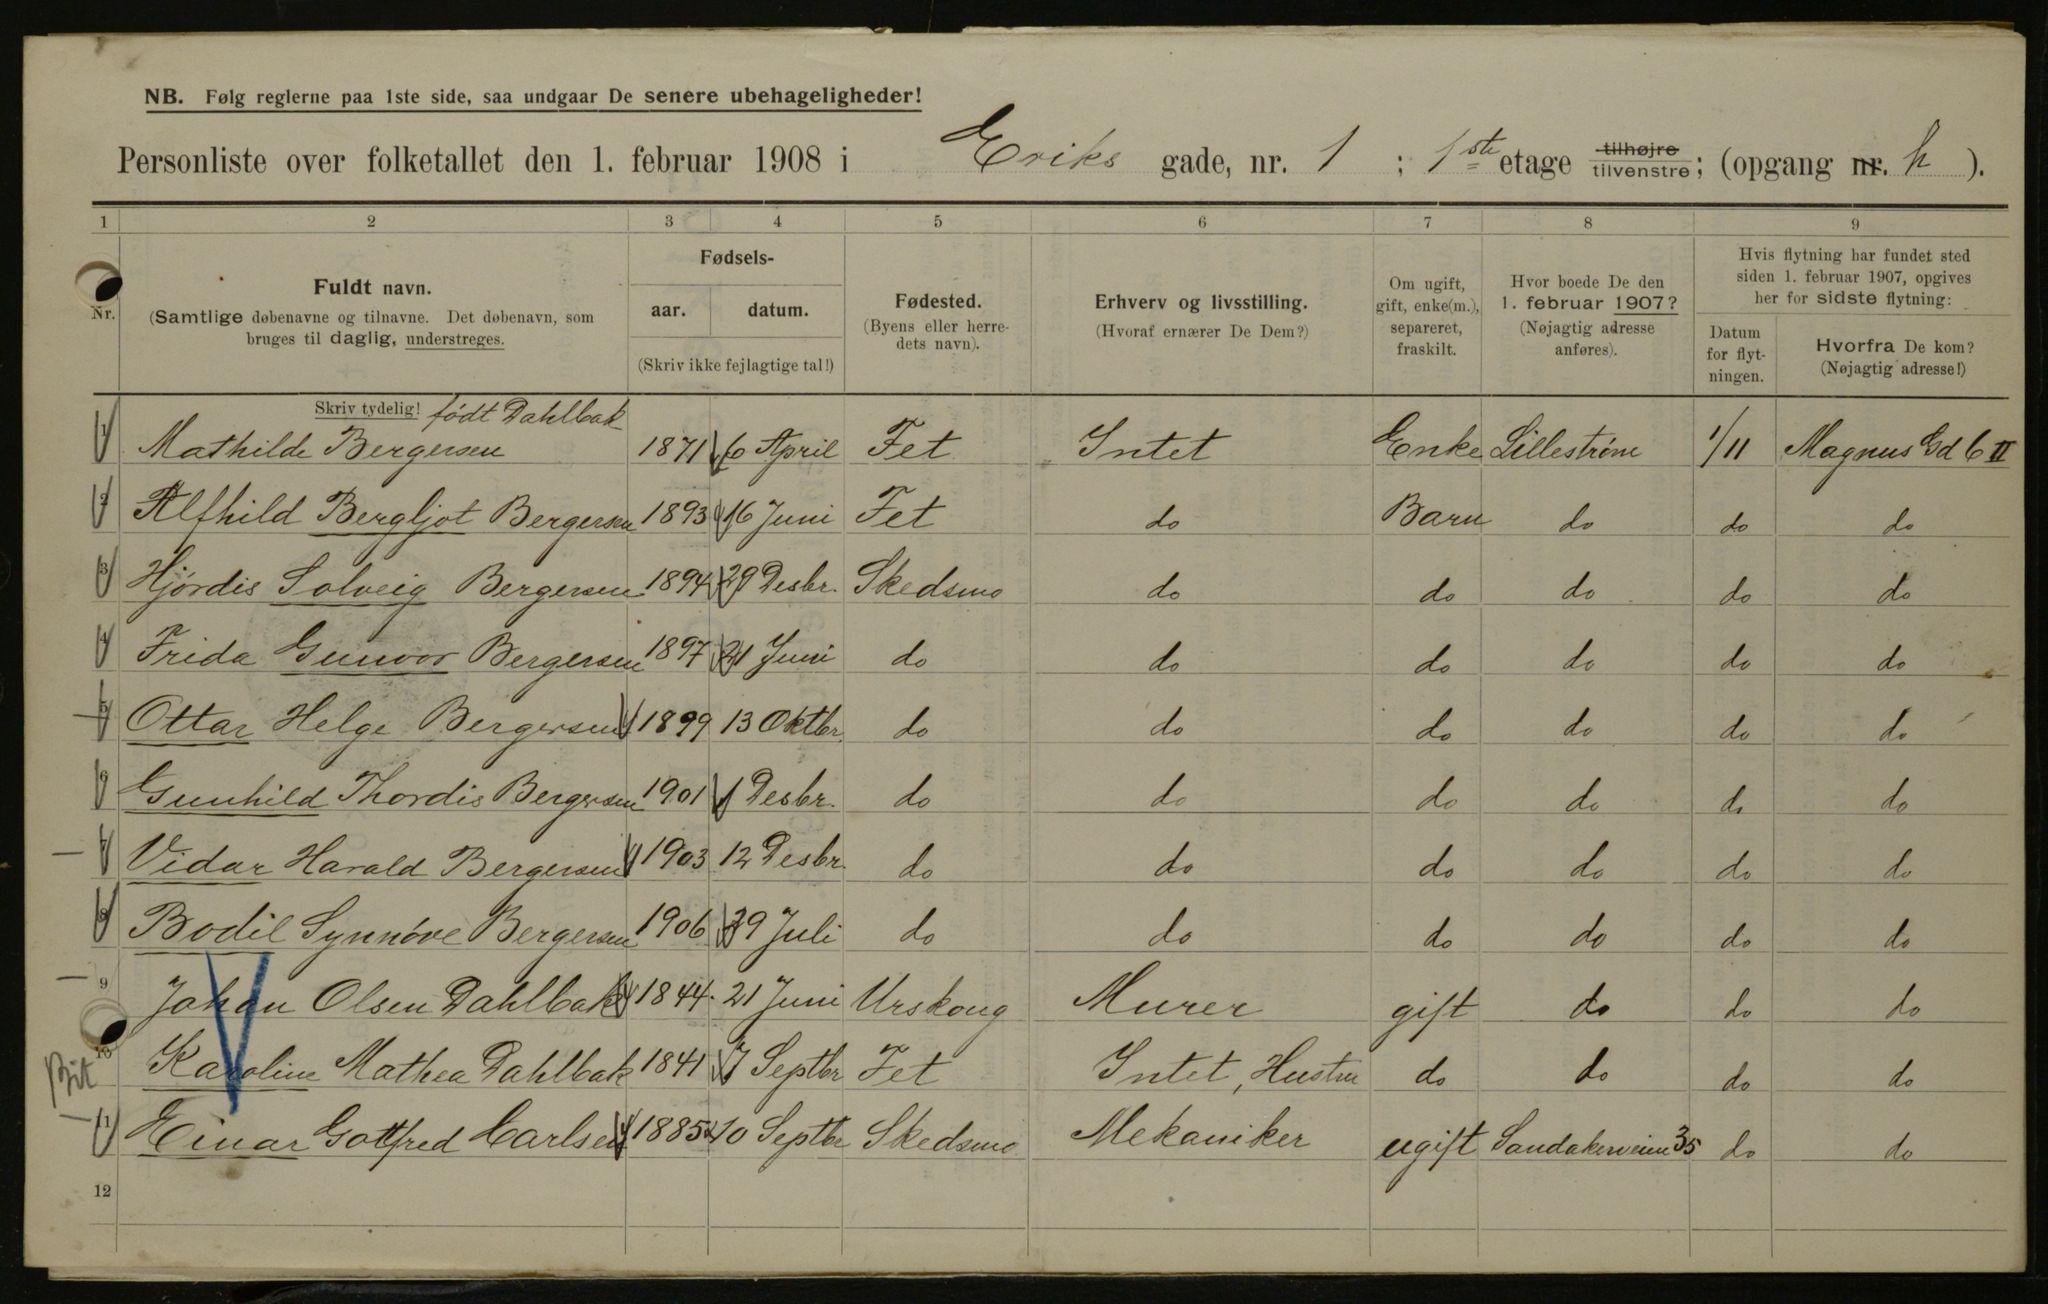 NB. Følg reglerne paa 1ste side, saa undgaar De senere ubehageligheder!
Personliste over folketallet den 1. februar 1908 i Eriks gade, nr. 1 ; 1ste etage tilhøjre tilvenstre; (opgang nr. h ).
1 2 3 4 5 6 7 8 9
Nr.
Fuldt navn.
(Samtlige døbenavne og tilnavne. Det døbenavn, som
bruges til daglig, understreges.
Skriv tydelig!
Fødsels-
aar. datum.
(Skriv ikke fejlagtige tal!)
Fødested.
(Byens eller herre-
dets navn).
Erhverv og livsstilling.
(Hvoraf ernærer De Dem?)
Om ugift,
gift, enke(m.),
separeret,
fraskilt.
Hvor boede De den
1. februar 1907?
(Nøjagtig adresse
anføres).
Hvis flytning har fundet sted
siden 1. februar 1907, opgives
her for sidste flytning:
Datum
for flyt-
ningen.
Hvorfra De kom?
(Nøjagtig adresse!)
født Dahlbak
1 Mathilde Bergersen 1871 6 April Fet Intet Enke Lillestrøm 1/11 Magnus Gd 6 II
2 Alfhild Bergljot Bergersen 1893 16 Juni Fet do Barn do do do
3 Hjørdis Solveig Bergersen 1894 29 Desbr. Skedsmo do do do do do
4 Frida Gunvor Bergersen 1897 21 Juni do do do do do do
5 Ottar Helge Bergersen 1899 13 Oktbr. do do do do do do
6 Gunhild Thordis Bergersen 1901 1 Desbr. do do do do do do
7 Vidar Harald Bergersen 1903 12 Desbr. do do do do do do
8 Bodil Synnöve Bergersen 1906 29 Juli do do do do do do
9 Johan Olsen Dahlbak 1844 21 Juni Urskoug Murer gift do do do
10 Karoline Mathea Dahlbak 1841 7 Septbr Fet Intet, Hustru do do do do
11 Einar Gotfred Carlsen 1885 10 Septbr Skedsmo Mekaniker ugift Sandakerveien 35 do do
12